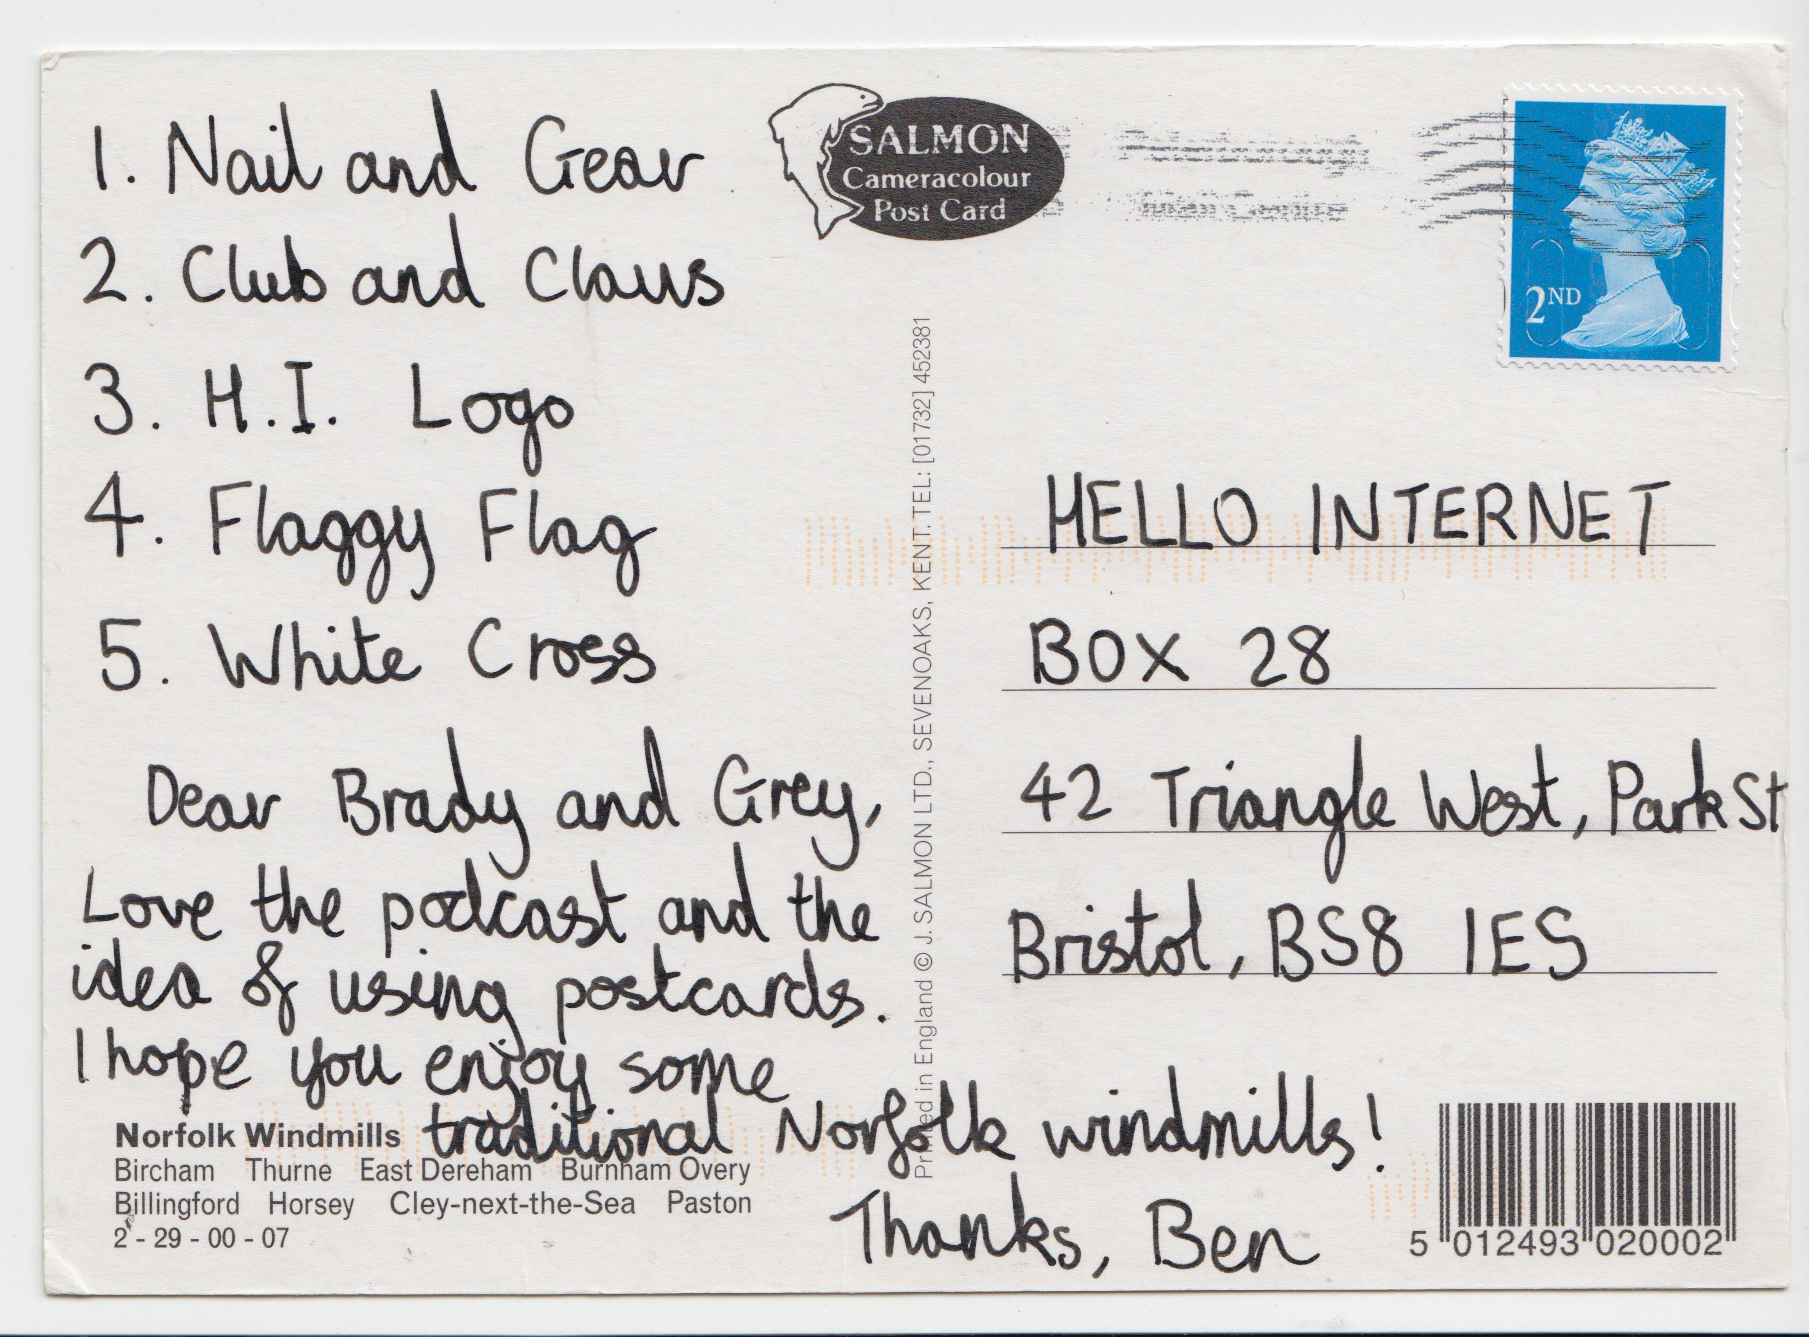 1. Nail and Gear
2. Club and Claus
3. H.I. Logo
4. Flaggy Flag
5. White Cross
Dear Brady and Grey,
Love the podcast and the
idea of using postcards.
I hope you enjoy some
traditional Norfolk windmills!
Thanks, Ben
Norfolk Windmills
Bircham Thurne East Dereham Burnham Overy
Billingford Horsey Cley-next-the-Sea Paston
2 - 29 - 00 - 07
SALMON
Cameracolour
Post Card
Printed in England © J. SALMON LTD., SEVENOAKS, KENT. TEL: [01732] 452381
2ND
HELLO INTERNET
BOX 28
42 Triangle West, Park St
Bristol, BS8 1ES
5 012493 020002